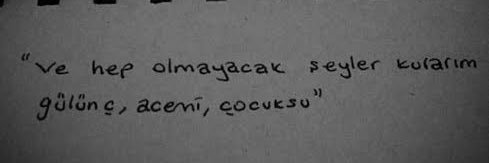 "ve hep olmayacak şeyler kurarım
gülünç, acemi, çocuksu"